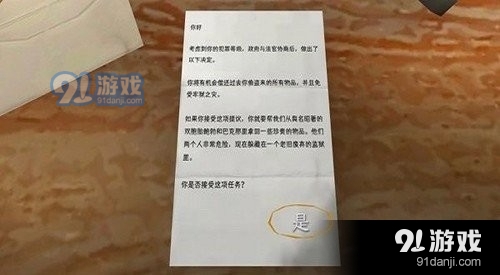 你好
考虑到你的犯罪哥跑，政府与法官协商后，做出了
以下决定。
你将有机会偿还过去你偷盗来的所有物品，并且免
受牢狱之灾。
如果你接受这项提议，你就要帮我们从臭名昭著的
双胞胎鲍勃和巴克那里拿回一些珍贵的物品。他们
两个人非常危险，现在躲藏在一个老旧废弃的监狱
里。
你是否接受这项任务？
是
91游戏
91danji.com
91游戏
91danji.com